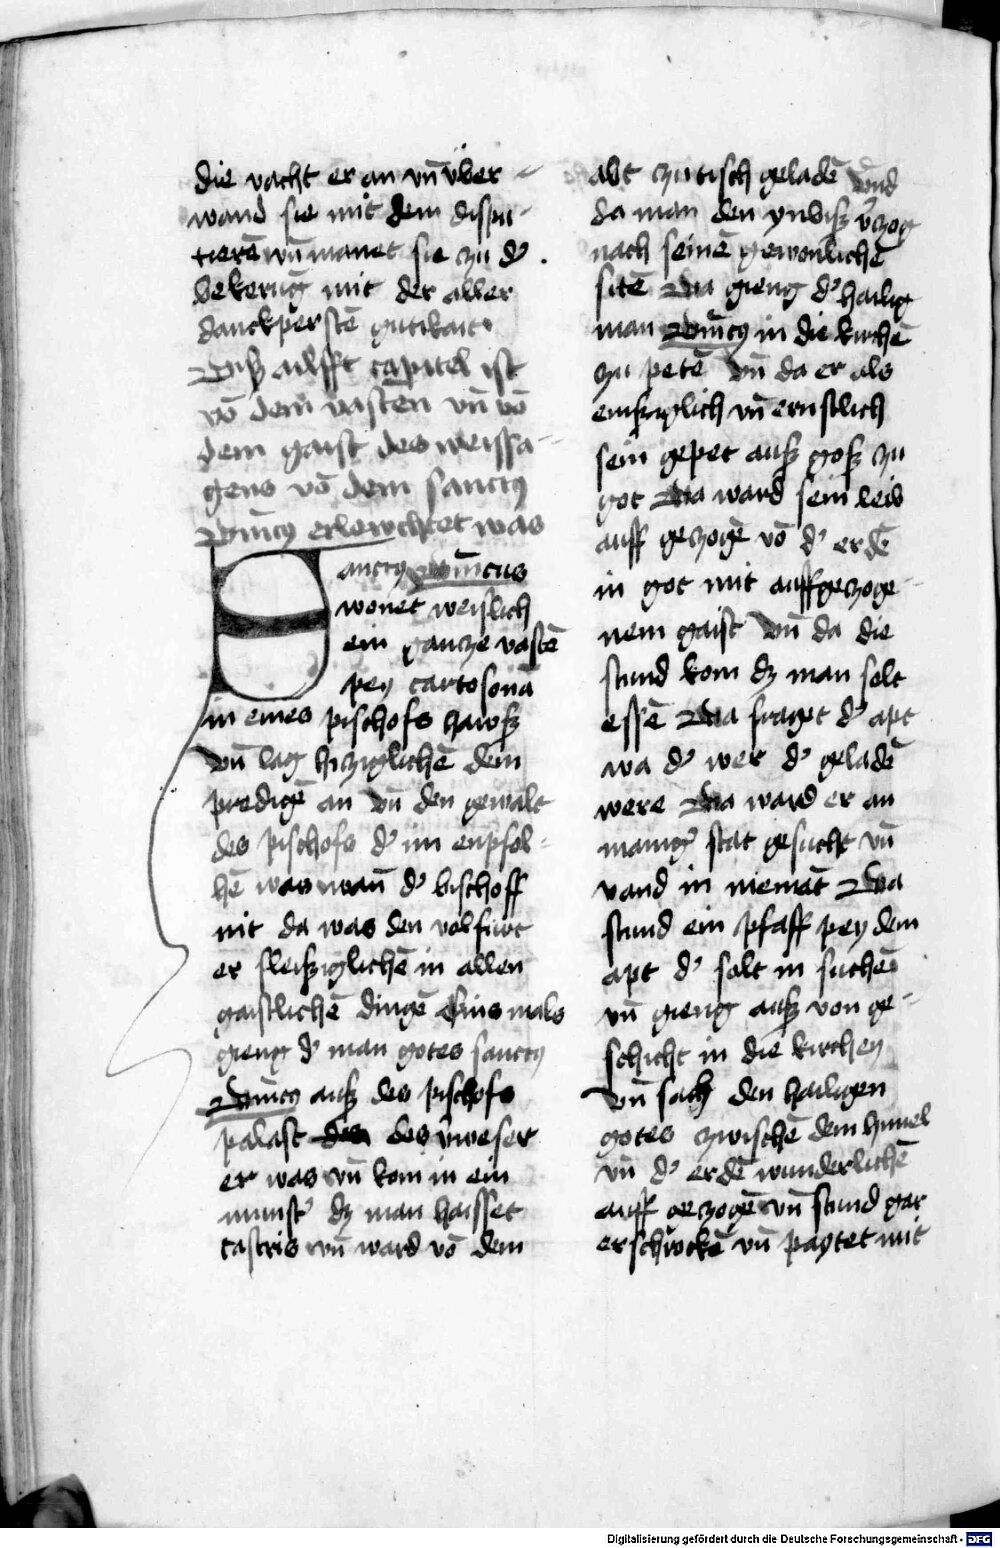 die vacht er an vn̄ über
wand sie mit dem dispu
tierē vn̄ manet sie zu dˀ
bekerūg mit der aller
danckperstē gutikait
Diß ailfft capitel ist
vō dem vasten vn̄ vō
dem gaist des weissa
gens vō dem sanctꝯ
Dn̄icꝯ erlewchtet was
Sanctꝯ Dn̄icus
wonet weislich
ein gancze vastē
pey cartosona
in eines pischofs hawß
vn̄ lag hicziglichē dem
predigē an vn̄ den gewalt
des pischofs dˀ im enpfol
hē was wan̄ dˀ bischoff
nit da was den volfürt
er fleißiglichē in allen
gaistlichē dingē Eins mals
gieng dˀ man gotes sanctꝯ
Dn̄icꝯ auß des pischofs
palast des v̓weser
er was vn̄ kom in ein
munstˀ dz man haisset
castris vn̄ ward vō dem
abt zu tisch geladē vnd
da man den ynbiß v̓zog
nach seinē gewonlichē
sitē Da gieng dˀ hailig
man Dn̄icꝯ in die kirchē
zu petē vn̄ da er als
emßiglich vn̄ ernstlich
sein gepet auß goß zu
got Da ward sein leib
auff gezogē vō dˀ erdē
in got mit auffgezoge
nem gaist vn̄ da die
stund kom dz man solt
essē Da fraget dˀ apt
wa dˀ wer dˀ geladē
were Da ward er an
mangˀ stat gesucht vn̄
vand in niemāt Da
stund ein pfaff pey dem
apt dˀ solt in suchē
vn̄ gieng auß von ge
schicht in die kirchen
vn̄ sach den hailigen
gotes zwischē dem hymel
vn̄ dˀ erdē wunderlichē
auff gezogē vn̄ stund gar
erschrockē vn̄ paytet mit
Digitalisierung gefördert durch die Deutsche Forschungsgemeinschaft - DFG